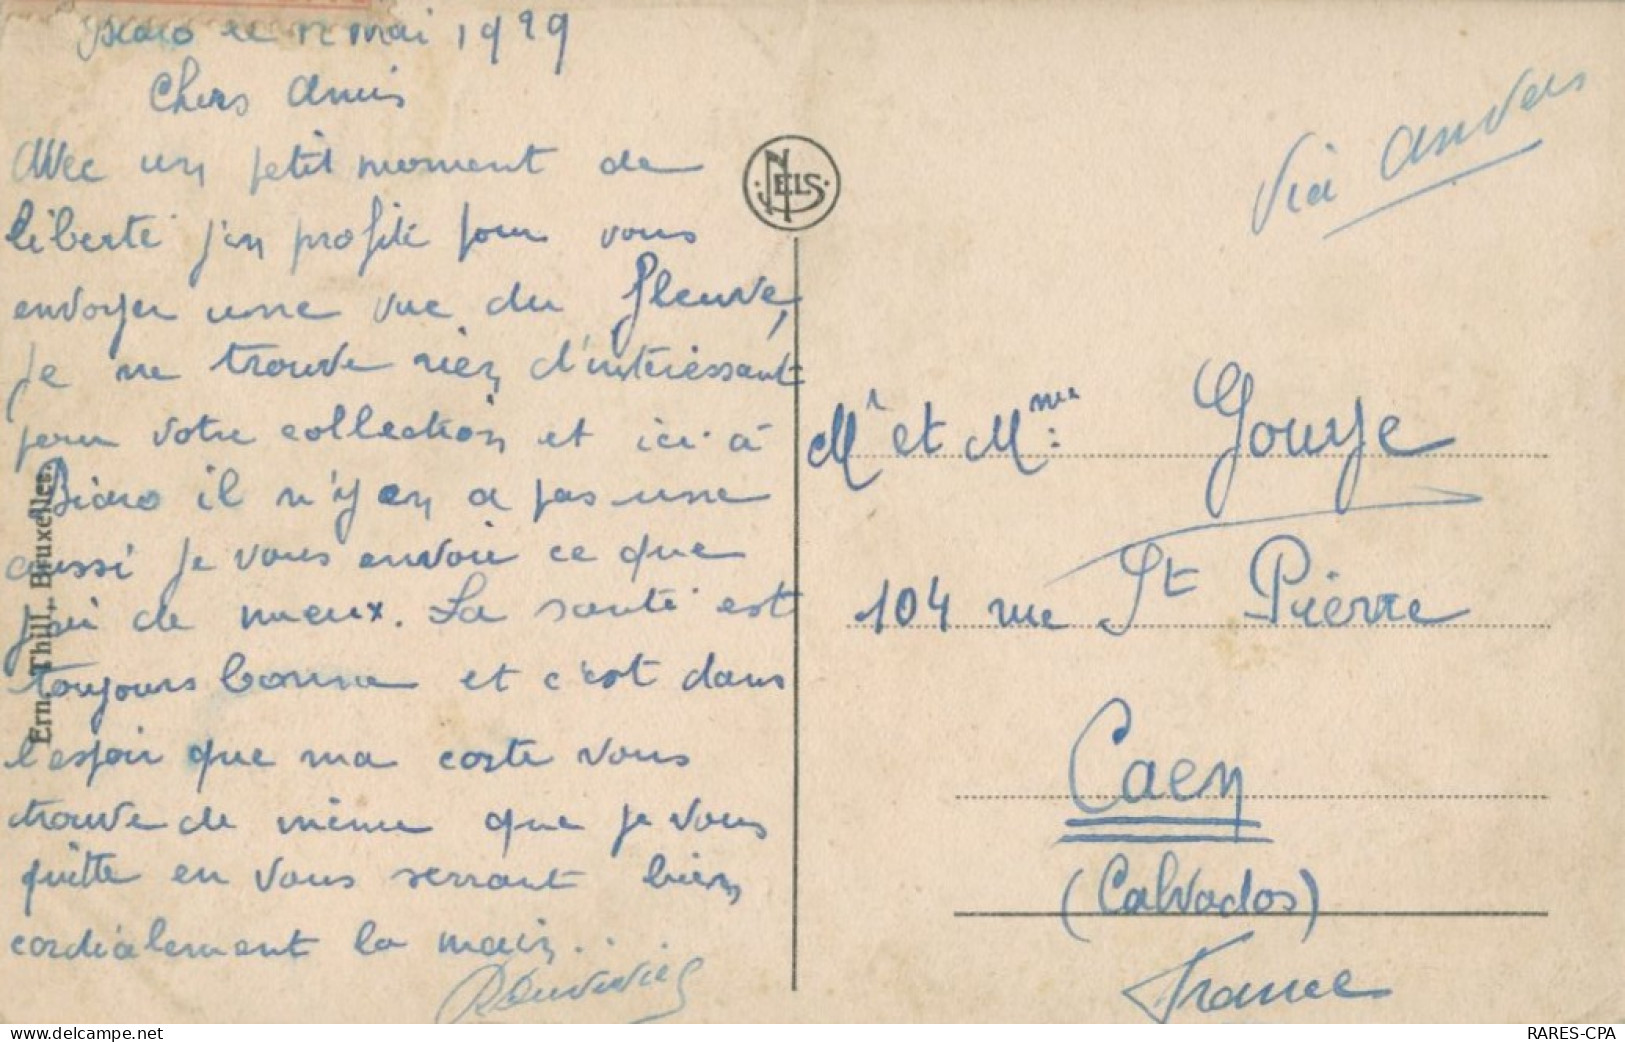 le 12 mai 1929
Chers Amis
Avec un petit moment de
liberté j'en profite pour vous
envoyer une vue du fleuve,
je ne trouve rien d'intéressant
pour votre collection et ici à
Biaro il n'y en a pas une
aussi je vous envoie ce que
j'ai de mieux. La santé est
toujours bonne et c'est dans
l'espoir que ma carte vous
trouve de même que je vous
quitte en vous serrant bien
cordialement la main..
NELS
Ern. Thill, Bruxelles.
Via Anvers
Mr et Mme: Gouye
104 rue St Pierre
Caen
(Calvados)
France
RARES-CPA